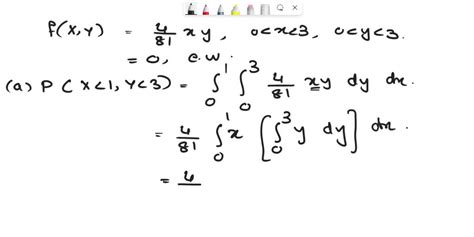 f(x,y) = 4/81 xy, 0<x<3, 0<y<3.
= 0, e.w.
(a) P(X<1, Y<3) = ∫₀¹ ∫₀³ 4/81 xy dy dx.
= 4/81 ∫₀¹ x [∫₀³ y dy] dx.
= 4